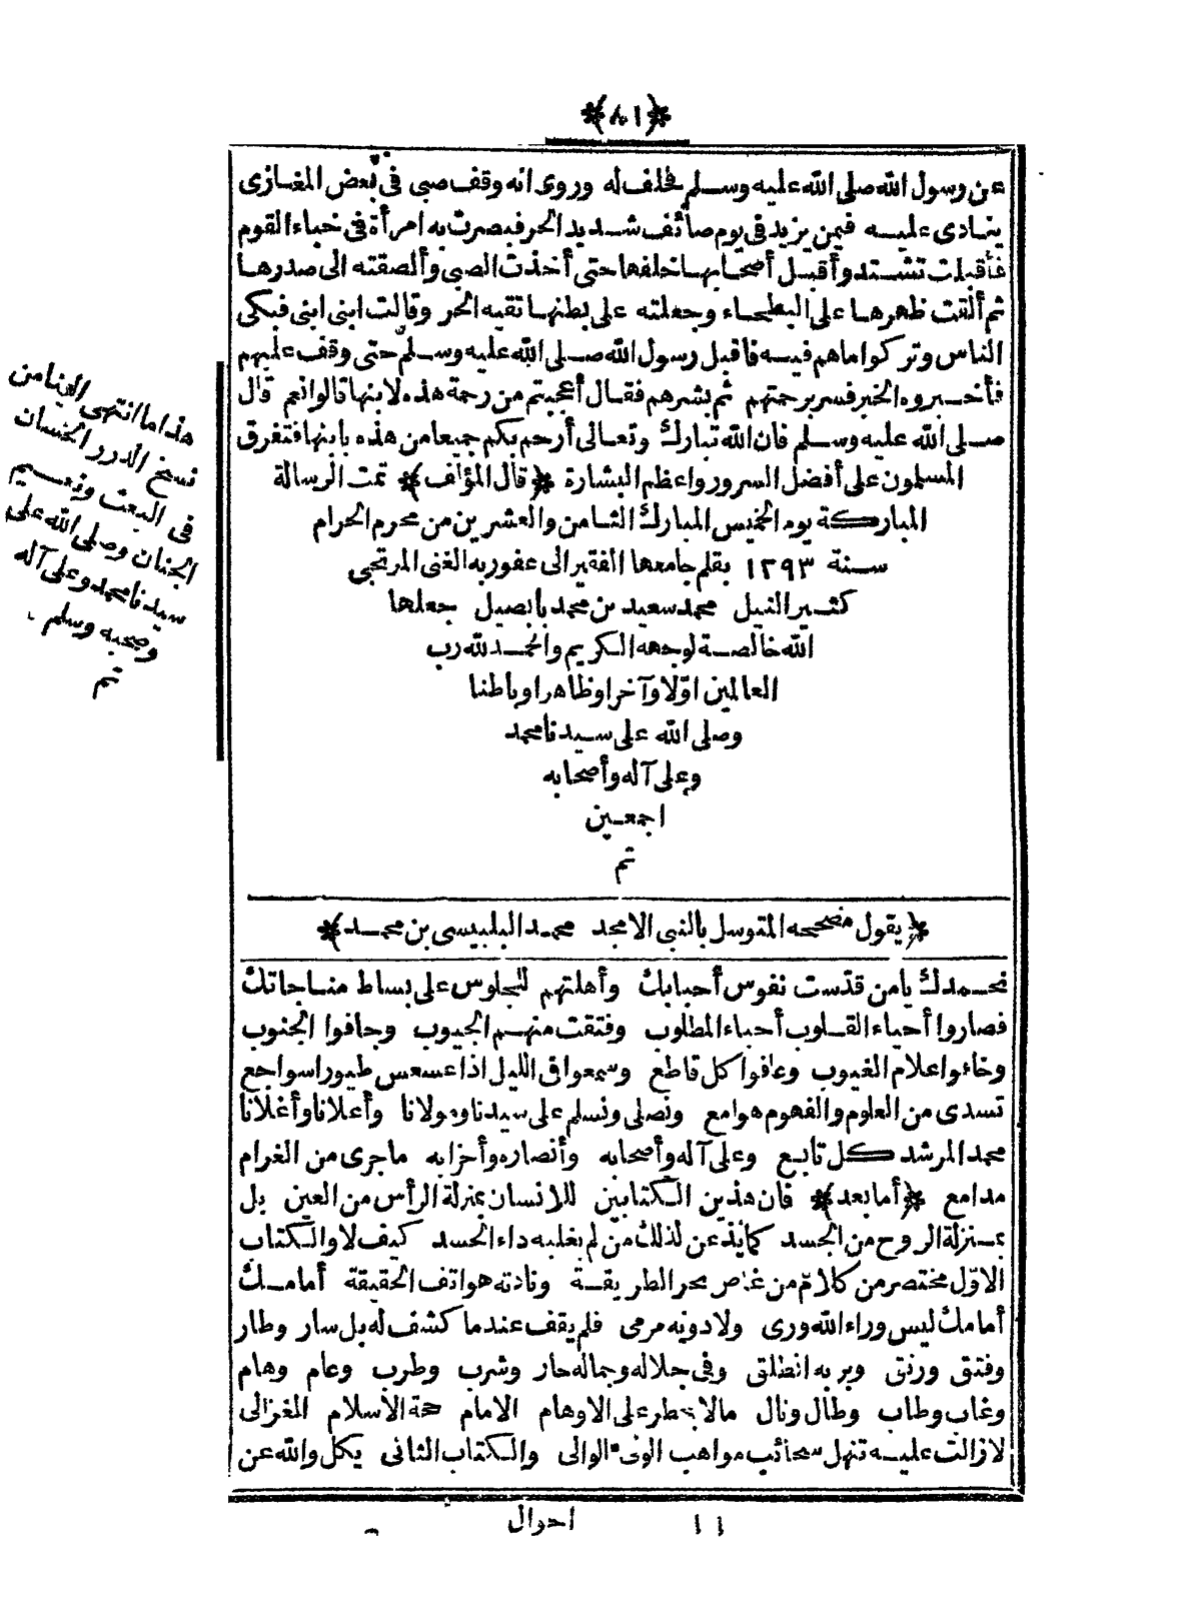 ﴿٨١﴾
عن رسول الله صلى الله عليه وسلم فحلف له وروى انه وقف صبى فى بعض المغازى
ينادى عليه فيمن يزيد فى يوم صائف شديد الحر فبصرت به امرأة فى خباء القوم
فأقبلت تشتد وأقبل أصحابها خلفها حتى أخذت الصبى وألصقته الى صدرها
ثم ألقت ظهرها على البطحاء وجعلته على بطنها تقيه الحر وقالت ابنى ابنى فبكى
الناس وتركوا ماهم فيه فاقبل رسول الله صلى الله عليه وسلم حتى وقف عليهم
فأخبروه الخبر فسر برحمتهم ثم بشرهم فقال أعجبتم من رحمة هذه لابنها قالوا نعم قال
صلى الله عليه وسلم فان الله تبارك وتعالى أرحم بكم جميعا من هذه بابنها فتفرق
المسلمون على أفضل السرور واعظم البشارة ﴿قال المؤلف﴾ تمت الرسالة
المباركة يوم الخميس المبارك الثامن والعشرين من محرم الحرام
سنة ١٢٩٣ بقلم جامعها الفقير الى عفو ربه الغنى المرتجى
كثير النيل محمد سعيد بن محمد بابصيل جعلها
الله خالصة لوجهه الكريم والحمد لله رب
العالمين اوّلا وآخرا وظاهرا وباطنا
وصلى الله على سيدنا محمد
وعلى آله وأصحابه
اجمعين
تم
هذا ما انتهى الينا من
نسخ الدرر الحسان
فى البعث ونعيم
الجنان وصلى الله على
سيدنا محمد وعلى آله
وصحبه وسلم .
تم
﴿يقول مصححه المتوسل بالنبى الامجد محمد البلبيسى بن محمد﴾
نحمدك يامن قدّست نفوس أحبابك وأهلتهم للجلوس على بساط مناجاتك
فصاروا أحياء القلوب أحباء المطلوب وفتقت منهم الجيوب وجافوا الجنوب
وخاءوا علام الغيوب وعافوا كل قاطع وسمعوا فى الليل اذا عسعس طيورا سواجع
تسدى من العلوم والفهوم هوامع ونصلى ونسلم على سيدنا ومولانا وأعلانا وأغلانا
محمد المرشد كل تابع وعلى آله وأصحابه وأنصاره وأحزابه ماجرى من الغرام
مدامع ﴿أما بعد﴾ فان هذين الكتابين للانسان بمنزلة الرأس من العين بل
بمنزلة الروح من الجسد كما يؤذن عن لذلك من لم يغلبه داء الحسد كيف لا والكتاب
الاوّل مختصر من كلام من غاص بحر الطريقة ونادته هواتف الحقيقة أمامك
أمامك ليس وراء الله ورى ولا دونه مرمى فلم يقف عندما كشف له بل سار وطار
وفتق ورتق وبربه انطلق وفى جلاله وجماله حار وشرب وطرب وعام وهام
وغاب وطاب وطال ونال مالا يخطر على الاوهام الامام حجة الاسلام الغزالى
لازالت عليه تنهل سحائب مواهب الولى الوالى والكتاب الثانى يكل والله عن
١١
احوال